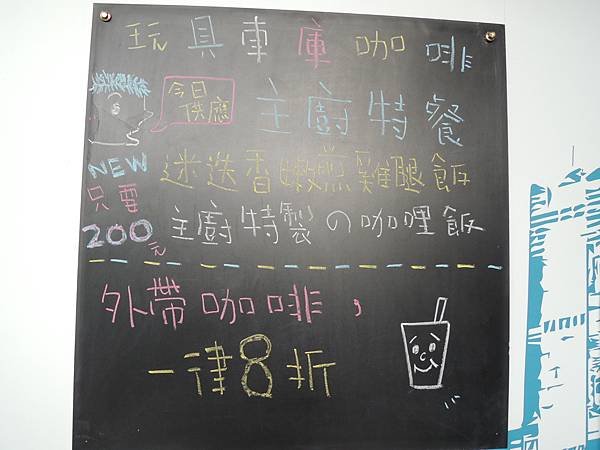 玩具車庫咖啡
今日
供應
主廚特餐
NEW
迷迭香嫩煎雞腿飯
只要
200元
主廚特製の咖哩飯
外帶咖啡，
一律8折